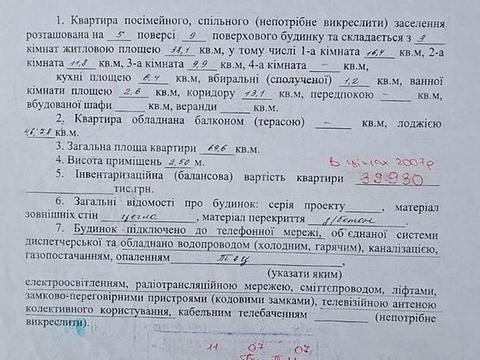 1. Квартира посімейного, спільного (непотрібне викреслити) заселення
розташована на 5 поверсі 9 поверхового будинку та складається з 3
кімнат житловою площею 38,1 кв.м, у тому числі 1-а кімната 16,4 кв.м, 2-а
кімната 11,8 кв.м, 3-а кімната 9,9 кв.м, 4-а кімната – кв.м,
кухні площею 8,4 кв.м, вбиральні (сполученої) 1,2 кв.м, ванної
кімнати площею 2,6 кв.м, коридору 13,1 кв.м, передпокою – кв.м,
вбудованої шафи кв.м, веранди кв.м.
2. Квартира обладнана балконом (терасою) – кв.м, лоджією
кв.м.
3. Загальна площа квартири 69,6 кв.м
4. Висота приміщень 2,50 м.
В цінах 2007р
5. Інвентаризаційна (балансова) вартість квартири 39930
тис.грн.
6. Загальні відомості про будинок: серія проекту, матеріал
зовнішніх стін цегла, матеріал перекриття з/бетон.
7. Будинок підключено до телефонної мережі, об'єднаної системи
диспетчерської та обладнано водопроводом (холодним, гарячим), каналізацією,
газопостачанням, опаленням ТЕЦ,
(указати яким)
електроосвітленням, радіотрансляційною мережею, сміттєпроводом, ліфтами,
замково-переговорними пристроями (кодовими замками), телевізійною антеною
колективного користування, кабельним телебаченням (непотрібне
викреслити).
11 07 07